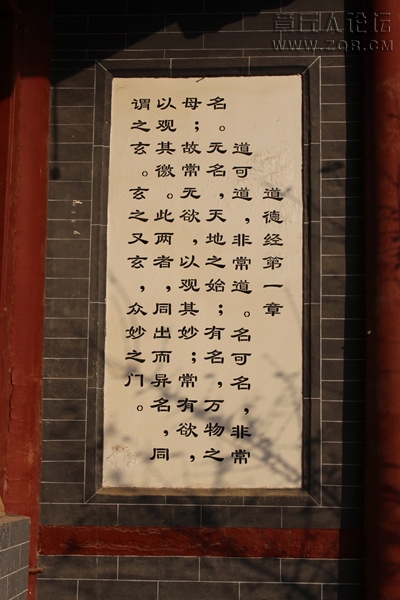 章丘人论坛
WWW.ZQR.CM
道德经第一章
道可道，非常道。名可名，非常
名。无名，天地之始；有名，万物之
母；故常无欲，以观其妙；常有欲，
以观其徼。此两者，同出而异名，同
谓之玄。玄之又玄，众妙之门。